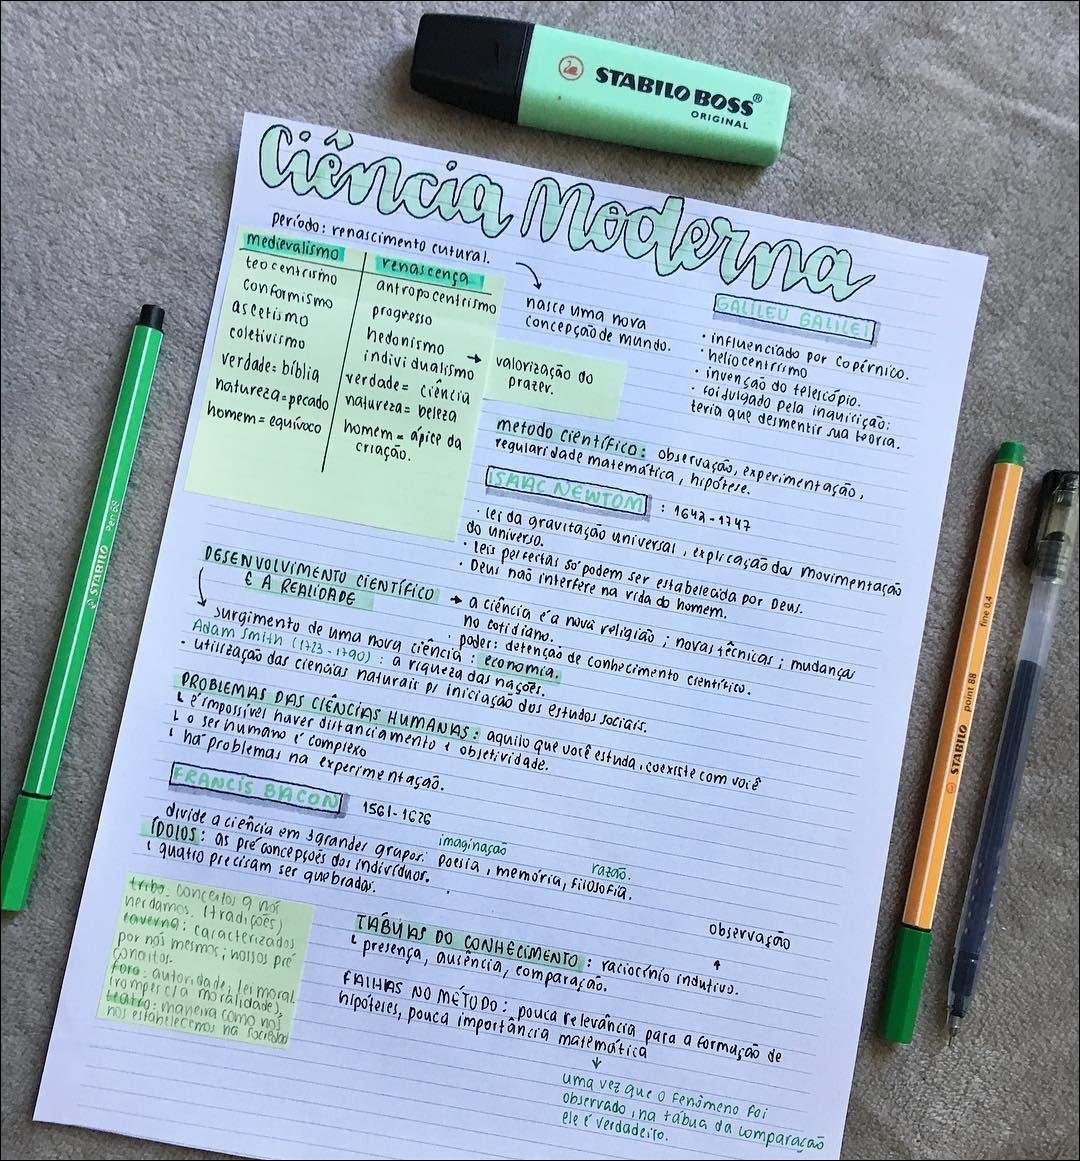 STABILO BOSS®
ORIGINAL
Ciência Moderna
período: renascimento cutural.
medievalismo
teocentrismo
conformismo
ascetismo
coletivismo
verdade = bíblia
natureza = pecado
homem = equívoco
renascença
antropocentrismo
progresso
hedonismo →
individualismo
verdade = ciência
natureza = beleza
homem = ápice da
criação.
valorização do
prazer.
nasce uma nova
concepção de mundo.
GALILEU GALILEI
• influenciado por Copérnico.
• heliocentrismo
• invensão do telescópio.
• foi julgado pela inquirição:
teria que desmentir sua teoria.
metodo científico: observação, experimentação,
regularidade matemática, hipótese.
ISAAC NEWTOM : 1642-1747
• lei da gravitação universal, explicação das movimentação
do universo.
• leis perfeitas só podem ser estabelecida por Deus.
• Deus não interfere na vida do homem.
DESENVOLVIMENTO CIENTÍFICO
E A REALIDADE
→ a ciência é a nova religião; novas técnicas; mudança
no cotidiano.
• poder: detenção de conhecimento científico.
surgimento de uma nova ciência: economia.
Adam Smith (1723-1790): a riqueza das nações.
• utilização das ciências naturais p/ iniciação dos estudos sociais.
PROBLEMAS DAS CIÊNCIAS HUMANAS: aquilo que você estuda, coexiste com você
é impossível haver distanciamento e objetividade.
o ser humano é complexo
há problemas na experimentação.
FRANCIS BACON 1561-1626
divide a ciência em 3 grandes grupos: poesia, memória, filosofia.
imaginação
razão.
ÍDOLOS: as pré concepções dos indivíduos.
quatro precisam ser quebradas.
tribo: conceitos q nós
herdamos. (tradições)
caverna: caracterizados
por nós mesmos; nossos pré
conceitos.
foro: autoridade, lei moral
(rompers/a moralidade),
teatro: maneira como nós
nos estabelecemos na sociedade
TÁBUAS DO CONHECIMENTO: raciocínio indutivo.
presença, ausência, comparação.
observação
↑
FALHAS NO MÉTODO: pouca relevância para a formação de
hipóteses, pouca importância matemática
↓
uma vez que o fenômeno foi
observado, na tábua da comparação
ele é verdadeiro.
STABILO Pen 68
STABILO point 88 fine 0,4